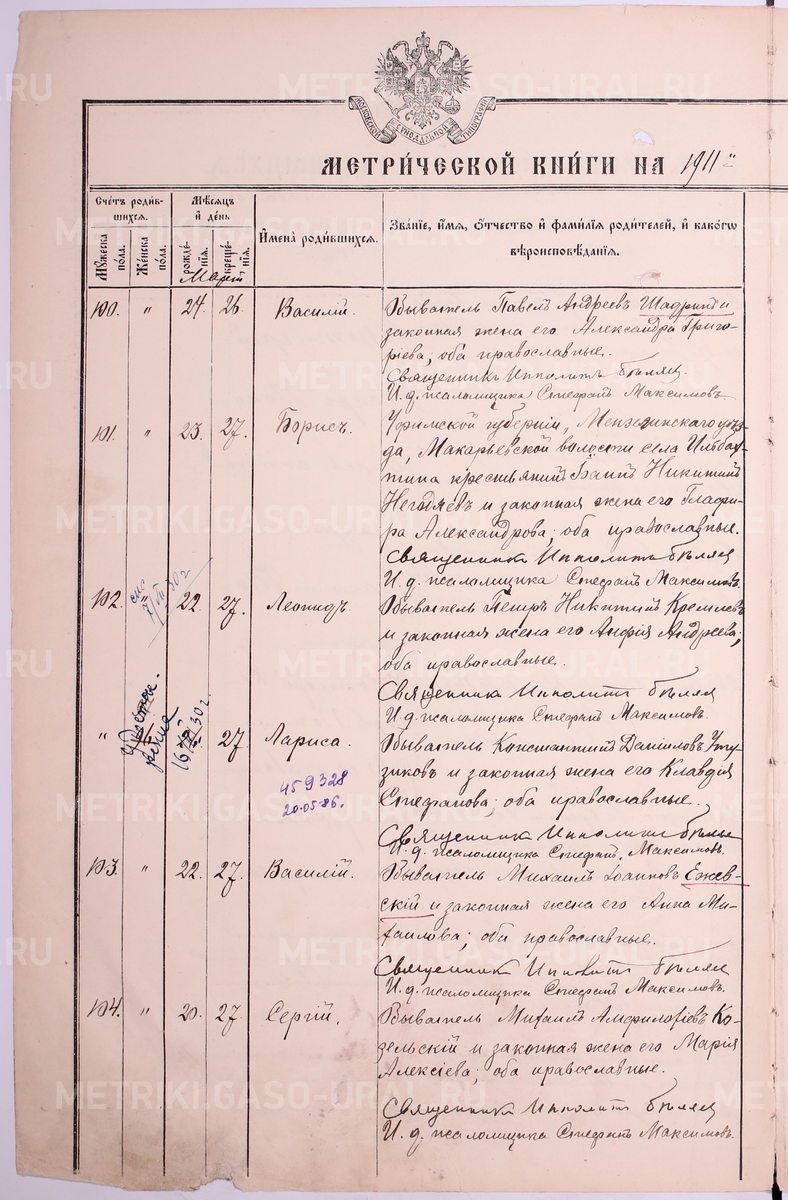 МОСКОВСКОЙ СѴНОДАЛЬНОЙ ТИПОГРАФІИ
МЕТРИ́ЧЕСКОЙ КНИ́ГИ НА 1911
Счетъ роди́в-
шихся.
Мѣсяцъ
и де́нь
Имена̀ роди́вшихся.
Зва́нїе, и́мя, ѻ́тчество и фами́лїя роди́телей, и како́гѡ
вѣроисповѣ́данїя.
Мꙋ́жеска по́ла.
Же́нска по́ла.
рожде́нїя.
креще́нїя.
Мартъ
100. " 24. 26. Василій. Обыватель Павелъ Андреевъ Шадринъ и
законная жена его Александра Григо-
ріева; оба православные.
Священникъ Ипполитъ Бѣляев
И. д. псаломщика Стефанъ Максимовъ
101. " 23. 27. Борисъ. Уфимской губерніи, Мензелинскаго уѣз-
да, Макарьевской волости села Ильбах-
тина крестьянинъ Іоаннъ Никитинъ
Негодяевъ и законная жена его Глафи-
ра Александрова; оба православные.
Священникъ Ипполитъ Бѣляев
И. д. псаломщика Стефанъ Максимовъ.
102. " 22. 27. Леонидъ. Обыватель Петръ Никитинъ Кремлевъ
и законная жена его Анфія Андреева;
оба православные.
Священникъ Ипполитъ Бѣляев
И. д. псаломщика Стефанъ Максимовъ.
" 27 Лариса. Обыватель Константинъ Даніиловъ
и законная жена его Клавдія
Стефанова; оба православные.
459328
20.05.86.
Священникъ Ипполитъ Бѣляев
И. д. псаломщика Стефанъ Максимовъ.
103. " 22. 27. Василій. Обыватель Михаилъ Іоанновъ Ежев-
скій и законная жена его Анна Ми-
хаилова; оба православные.
Священникъ Ипполитъ Бѣляев
И. д. псаломщика Стефанъ Максимовъ.
104. " 20. 27. Сергій. Обыватель Михаилъ Амфилохіевъ Ко-
зельскій и законная жена его Марія
Алексіева; оба православные.
Священникъ Ипполитъ Бѣляев
И. д. псаломщика Стефанъ Максимовъ.
METRIKI.GASO-URAL.RU